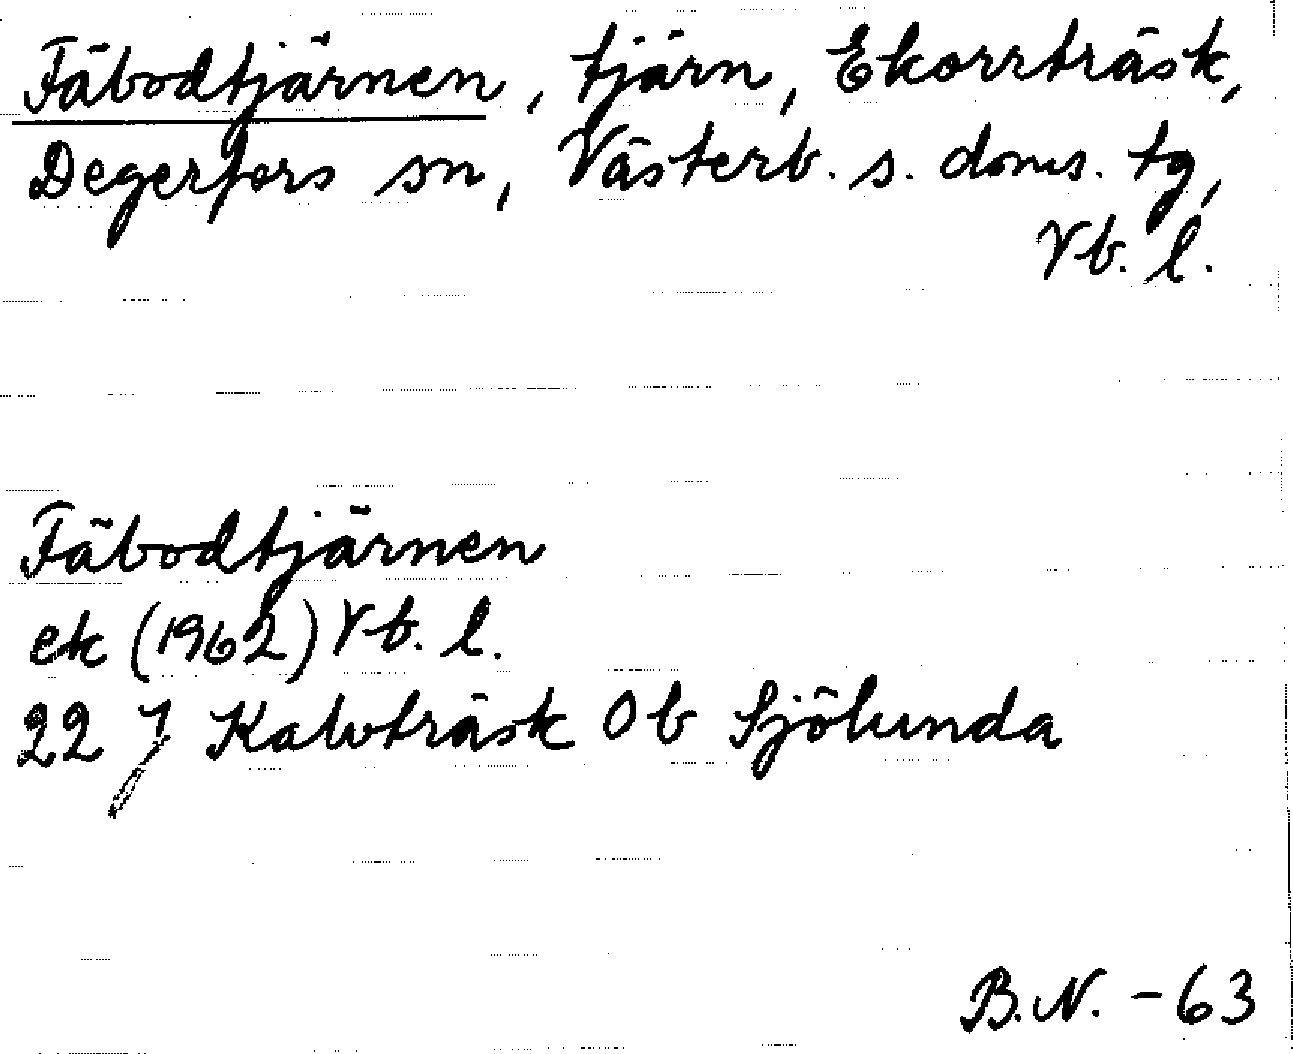 Fäbodtjärnen, tjärn, Ekorrträsk,
Degerfors sn, Västerb. s. doms. tg,
Vb. l.
Fäbodtjärnen
ek (1962) Vb. l.
22 J Kalvträsk Ob Sjölunda
B.N. - 63